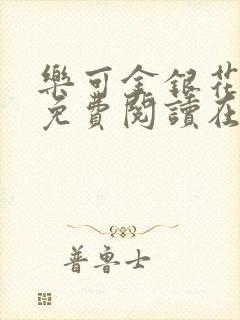 樂可金銀花
免費閱讀在
普魯士